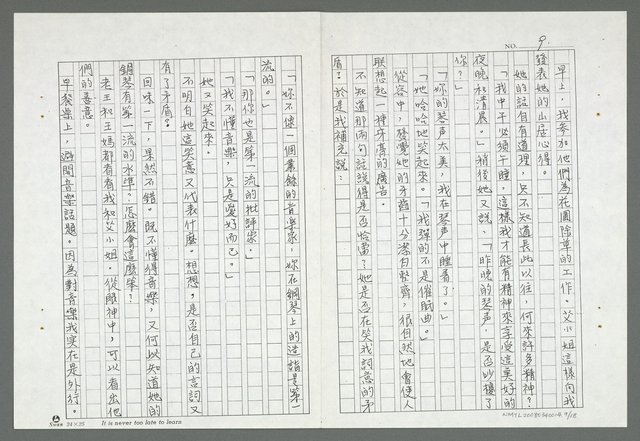 NO. 9.
早上，我參加他們為花園除草的工作。艾小姐這樣向我
發表她的山居心得。
她的話自有道理，只不知道長此以往，何來許多精神？
「我中午必須午睡，這樣我才能有精神來享受這美好的
夜晚和清晨。」稍後她又說：「昨晚的琴声，是否吵擾了
你？」
「妳的琴声太美，我在琴声中睡着了。」
「她哈哈地笑起來。「我彈的不是催眠曲。」
從容中，發覺她的牙齒十分潔白整齊，很自然地會使人
聯想起一種牙膏的廣告。
不知道那兩句話說得是否恰當？她是否在笑我詞意的矛
盾？於是我補充說：
「妳不像一個業餘的音樂家，妳在鋼琴上的造詣是第一
流的。」
「那你也是第一流的批評家。」
「我不懂音樂，只是愛好而已。」
她又笑起來。
不明白她這笑意又代表什麼。想想，是否自己的言詞又
有了矛盾。
回味一下，果然不錯。既不懂得音樂，又何以知道她的
鋼琴有第一流的水準？怎麼會這麼笨？
老王和王媽都看看我和艾小姐。從眼神中，可以看出他
們的善意。
早餐桌上，避開音樂話題。因為對音樂我實在是外行。
Swan 24×25 It is never too late to learn
NMTL20080540014 9/18